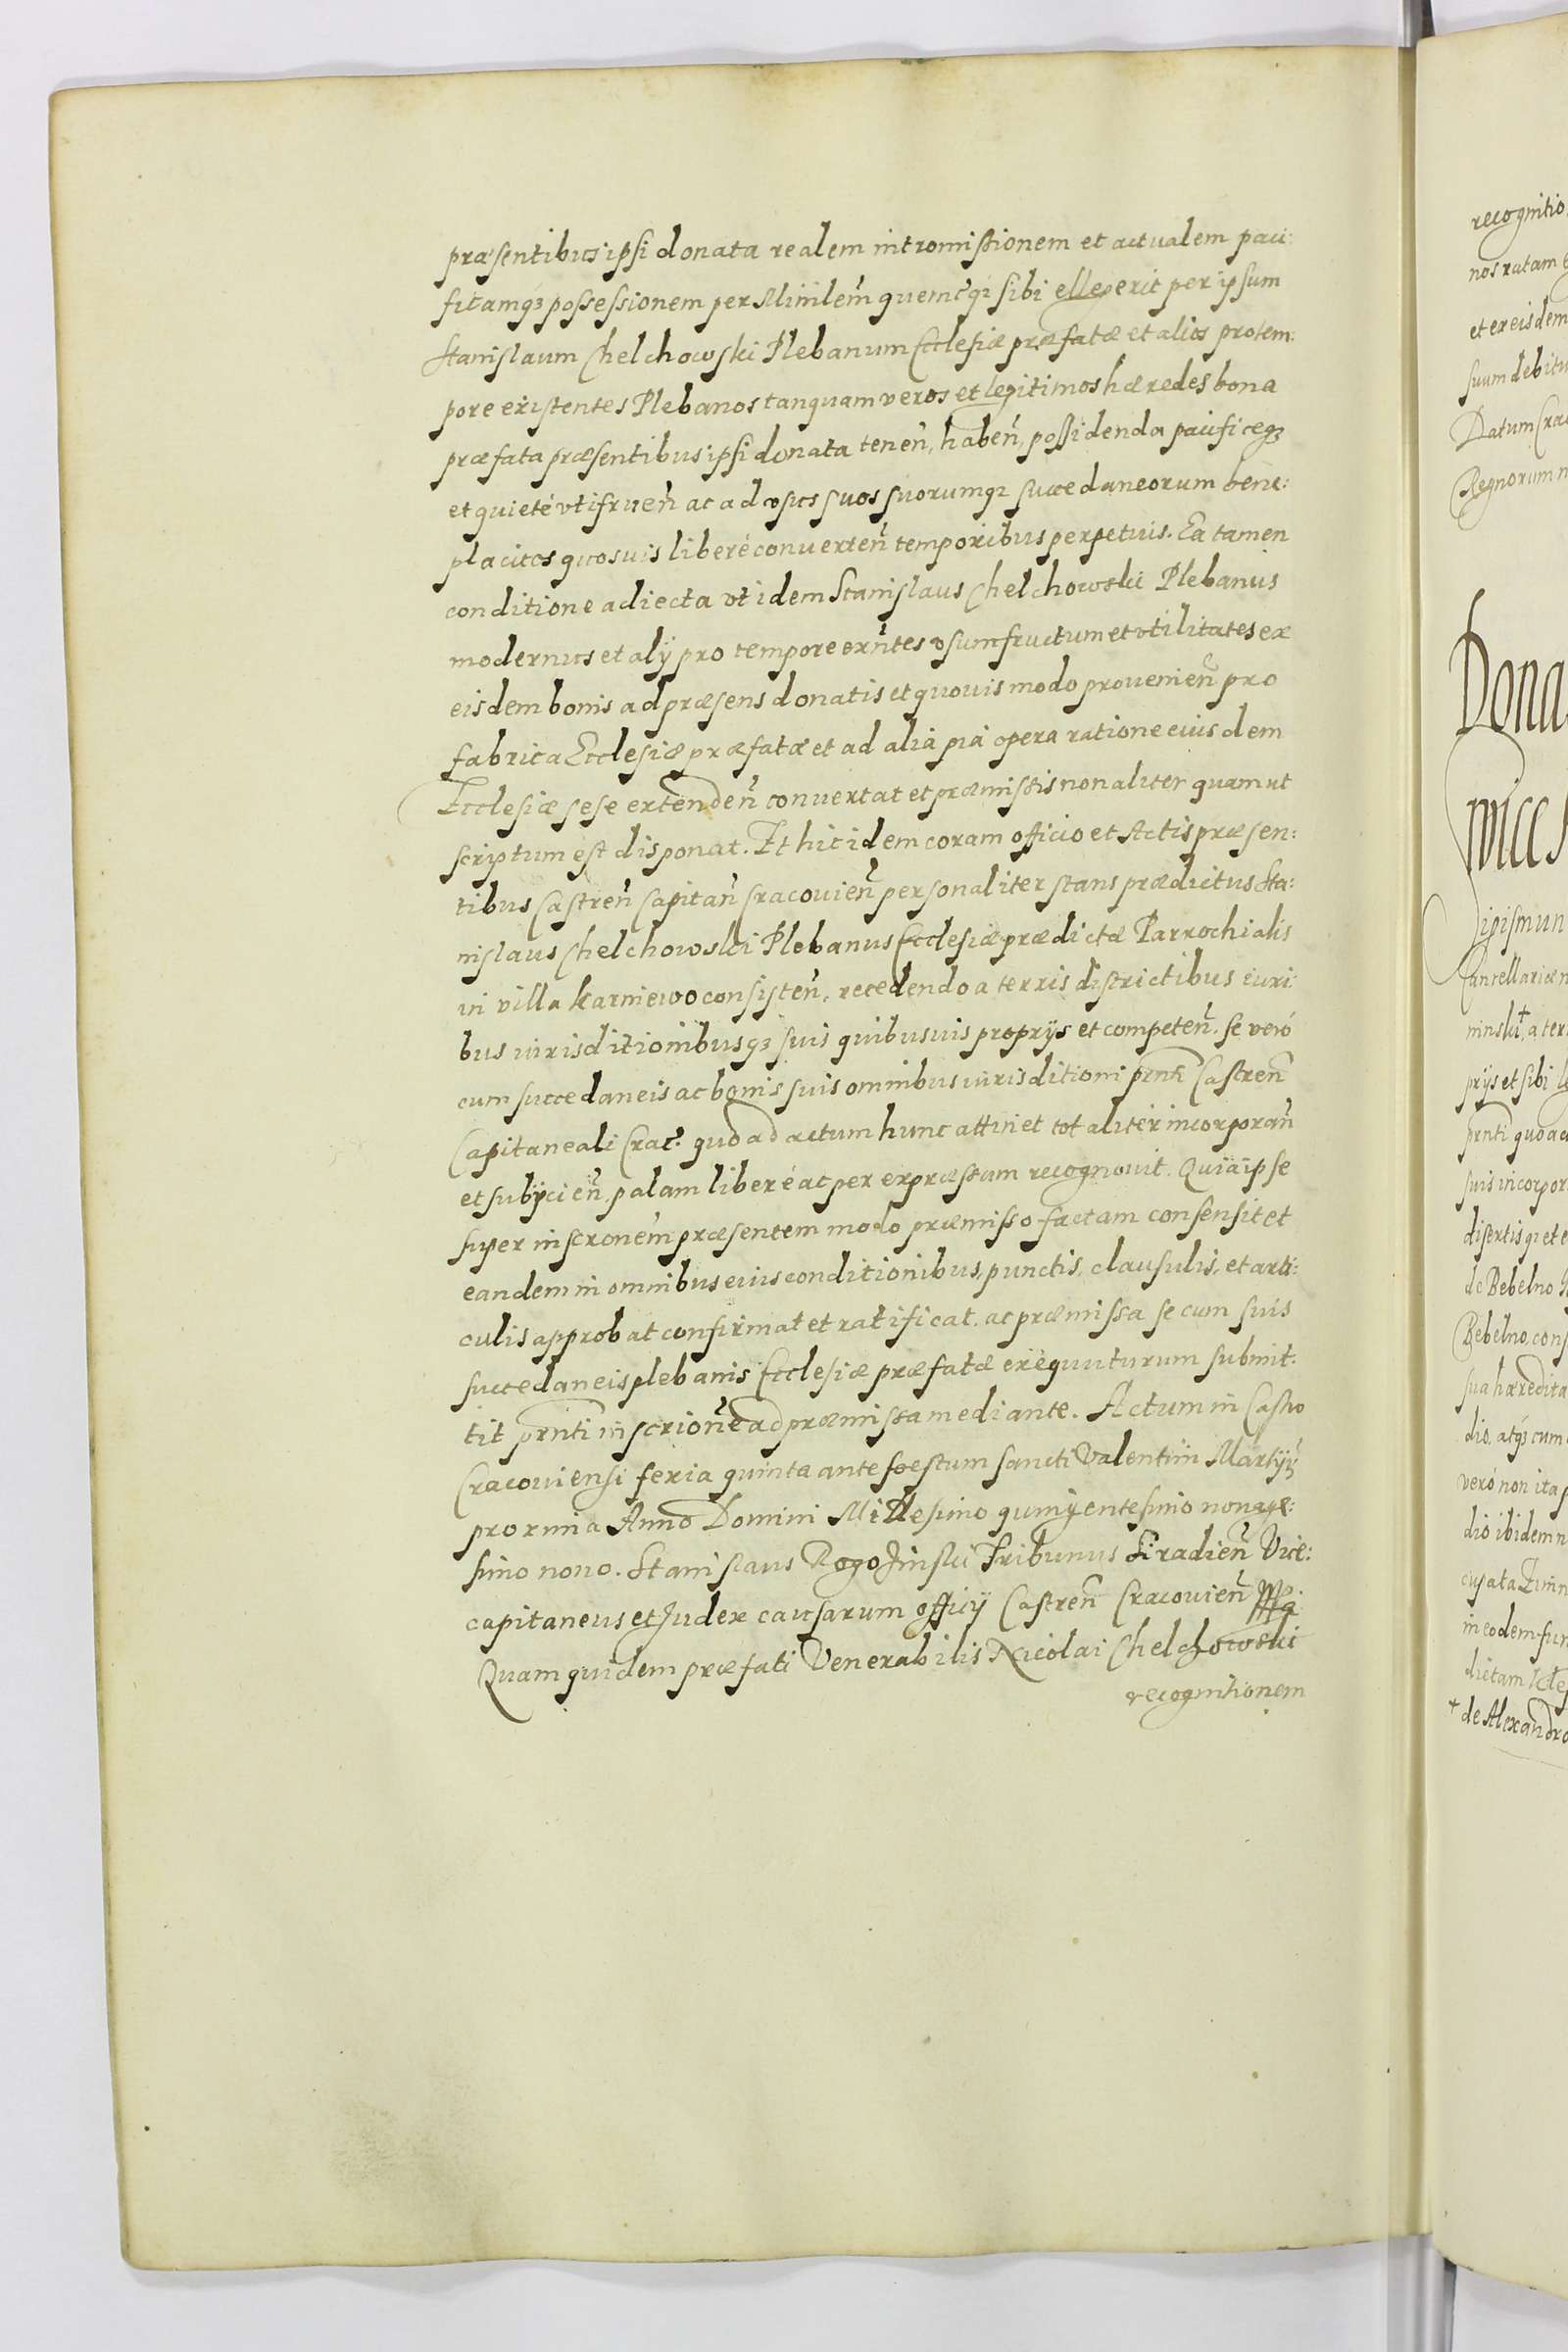 præsentibus ipsi donata realem intromissionem et actualem paci:
ficamq3 possessionem per Minilem̃ quemc̃q3 sibi ellegerit per ipsum
Stanislaum Chelchowski Plebanum Ecclesiæ præfatæ et alios pro tem:
pore existentes Plebanos tanquam veros et legitimos hæredes bona
præfata præsentibus ipsi donata tenen̄, haben̄, possidenda pacificeq3
et quieté vtifruen̄ ac ad vsus suos suorumq3 succedaneorum bene:
placitos quosuis liberé conuerten̄ temporibus perpetuis. Ea tamen
conditione adiecta vt idem Stanislaus Chelchowski Plebanus
modernus et alÿ pro tempore exn̄tes vsumfructum et vtilitates ex
eisdem bonis ad præsens donatis et quouis modo prouenien̄ pro
fabrica Ecclesiæ præfatæ et ad alia pia opera ratione eiusdem
Ecclesiæ sese extenden̄ conuertat et præmissis non aliter quam ut
scriptum est disponat. Et hic idem coram officio et Actis præsen:
tibus Castren̄ Capitan̄ Cracouien̄ personaliter stans prædictus Sta:
nislaus Chelchowski Plebanus Ecclesiæ prædictæ Parrochialis
in villa Karniewo consisten̄, recedendo a terris districtibus iuri:
bus iurisditionibusq3 suis quibusuis proprÿs et competen̄. se veró
cum succedaneis ac bonis suis omnibus iurisditioni pn̄ti Castren̄
Capitaneali Crac̄. quo ad actum hunc attinet totaliter incorporan̄
et subÿcien̄, palam liberé ac per expræssum recognouit. Quia ipse
super inscronem̄ præsentem modo præmisso factam consensit et
eandem in omnibus eius conditionibus, punctis, clausulis, et arti:
culis approbat confirmat et ratificat. ac præmissa se cum suis
succedaneis plebanis Ecclesiæ præfatæ exequuturum submit:
tit pn̄ti inscrione̅ ad præmissa mediante. Actum in Castro
Cracouiensi feria quinta ante foestum sancti Valentini Martyr̄
proxima Anno Domini Millesimo quingentesimo nonage:
simo nono. Stanislaus Rogozinski Tribunus Siradien̄ Vice:
capitaneus et Judex causarum officÿ Castren̄ Cracouien̄ Mp.
Quam quidem præfati Venerabilis Nicolai Chelchowski
recognitionem
recognitio
nos ratam
et ex eisdem
suum debitu
Datum Crac
Regnorum n
Dona
wicc
Sigismun
Cancellariæ n
ninski+, a ter
prÿs et sibi
pn̄ti quo a
suis incorpor
disertisq3 et e
de Bebelno
Bebelno, cons
sua hæredita
dio. atq3 cum
veró non ita
dio ibidem n
cupata Zimn
in eodem fun
dictam
+ de Alexandro